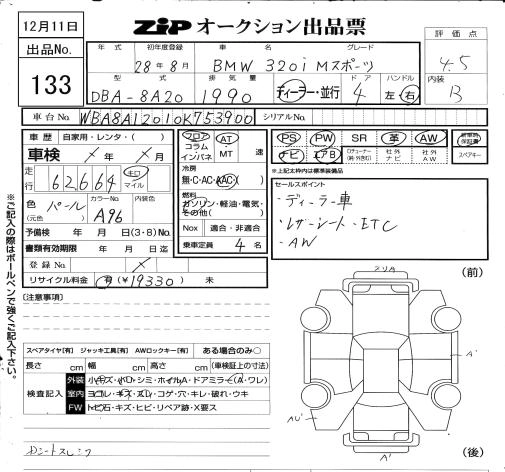 12月11日
出品No.
133
ZIP オークション出品票
評価点
4.5
内装
B
年式
初年度登録
車名
グレード
28年8月
BMW 320i Mスポーツ
型式
排気量
ドア
ハンドル
DBA-8A20
1990
ディーラー・並行
4
左・右
車台No.
WBA8A12010K753900
シリアルNo.
車歴
自家用・レンタ・( )
車検
× 年 × 月
走行
62664
キロ
マイル
色
(元色)
パール
カラーNo.
A96
内装色
予備検 年 月 日(3・8)No.
書類有効期限 年 月 日迄
登録No. ×
リサイクル料金 有(¥19330) 未
フロア
コラム
インパネ
AT
・
MT
速
冷房
無・C・AC・AAC( )
燃料
ガソリン・軽油・電気・
その他( )
Nox 適合・非適合
乗車定員 4名
PS
PW
SR
革
AW
新車時保証書
ナビ
エアB
社外ナビ
社外AW
スペアキー
*上記太枠内は標準装備品
セールスポイント
・ディーラー車
・レザーシート・ETC
・AW
※ご記入の際はボールペンで強くご記入下さい。
[注意事項]
スペアタイヤ[有] ジャッキ工具[有] AWロックキー[有] ある場合のみ○
長さ cm 幅 cm 高さ cm (車検証上の寸法)
検査記入
外装 小キズ・小凹・シミ・ホイルA・ドアミラー(A・ワレ)
室内 ヨゴレ・キズ・スレ・コゲ・穴・キレ・破れ・ウキ
FW トビ石・キズ・ヒビ・リペア跡・X要ス
(前)
A'
A'
(後)